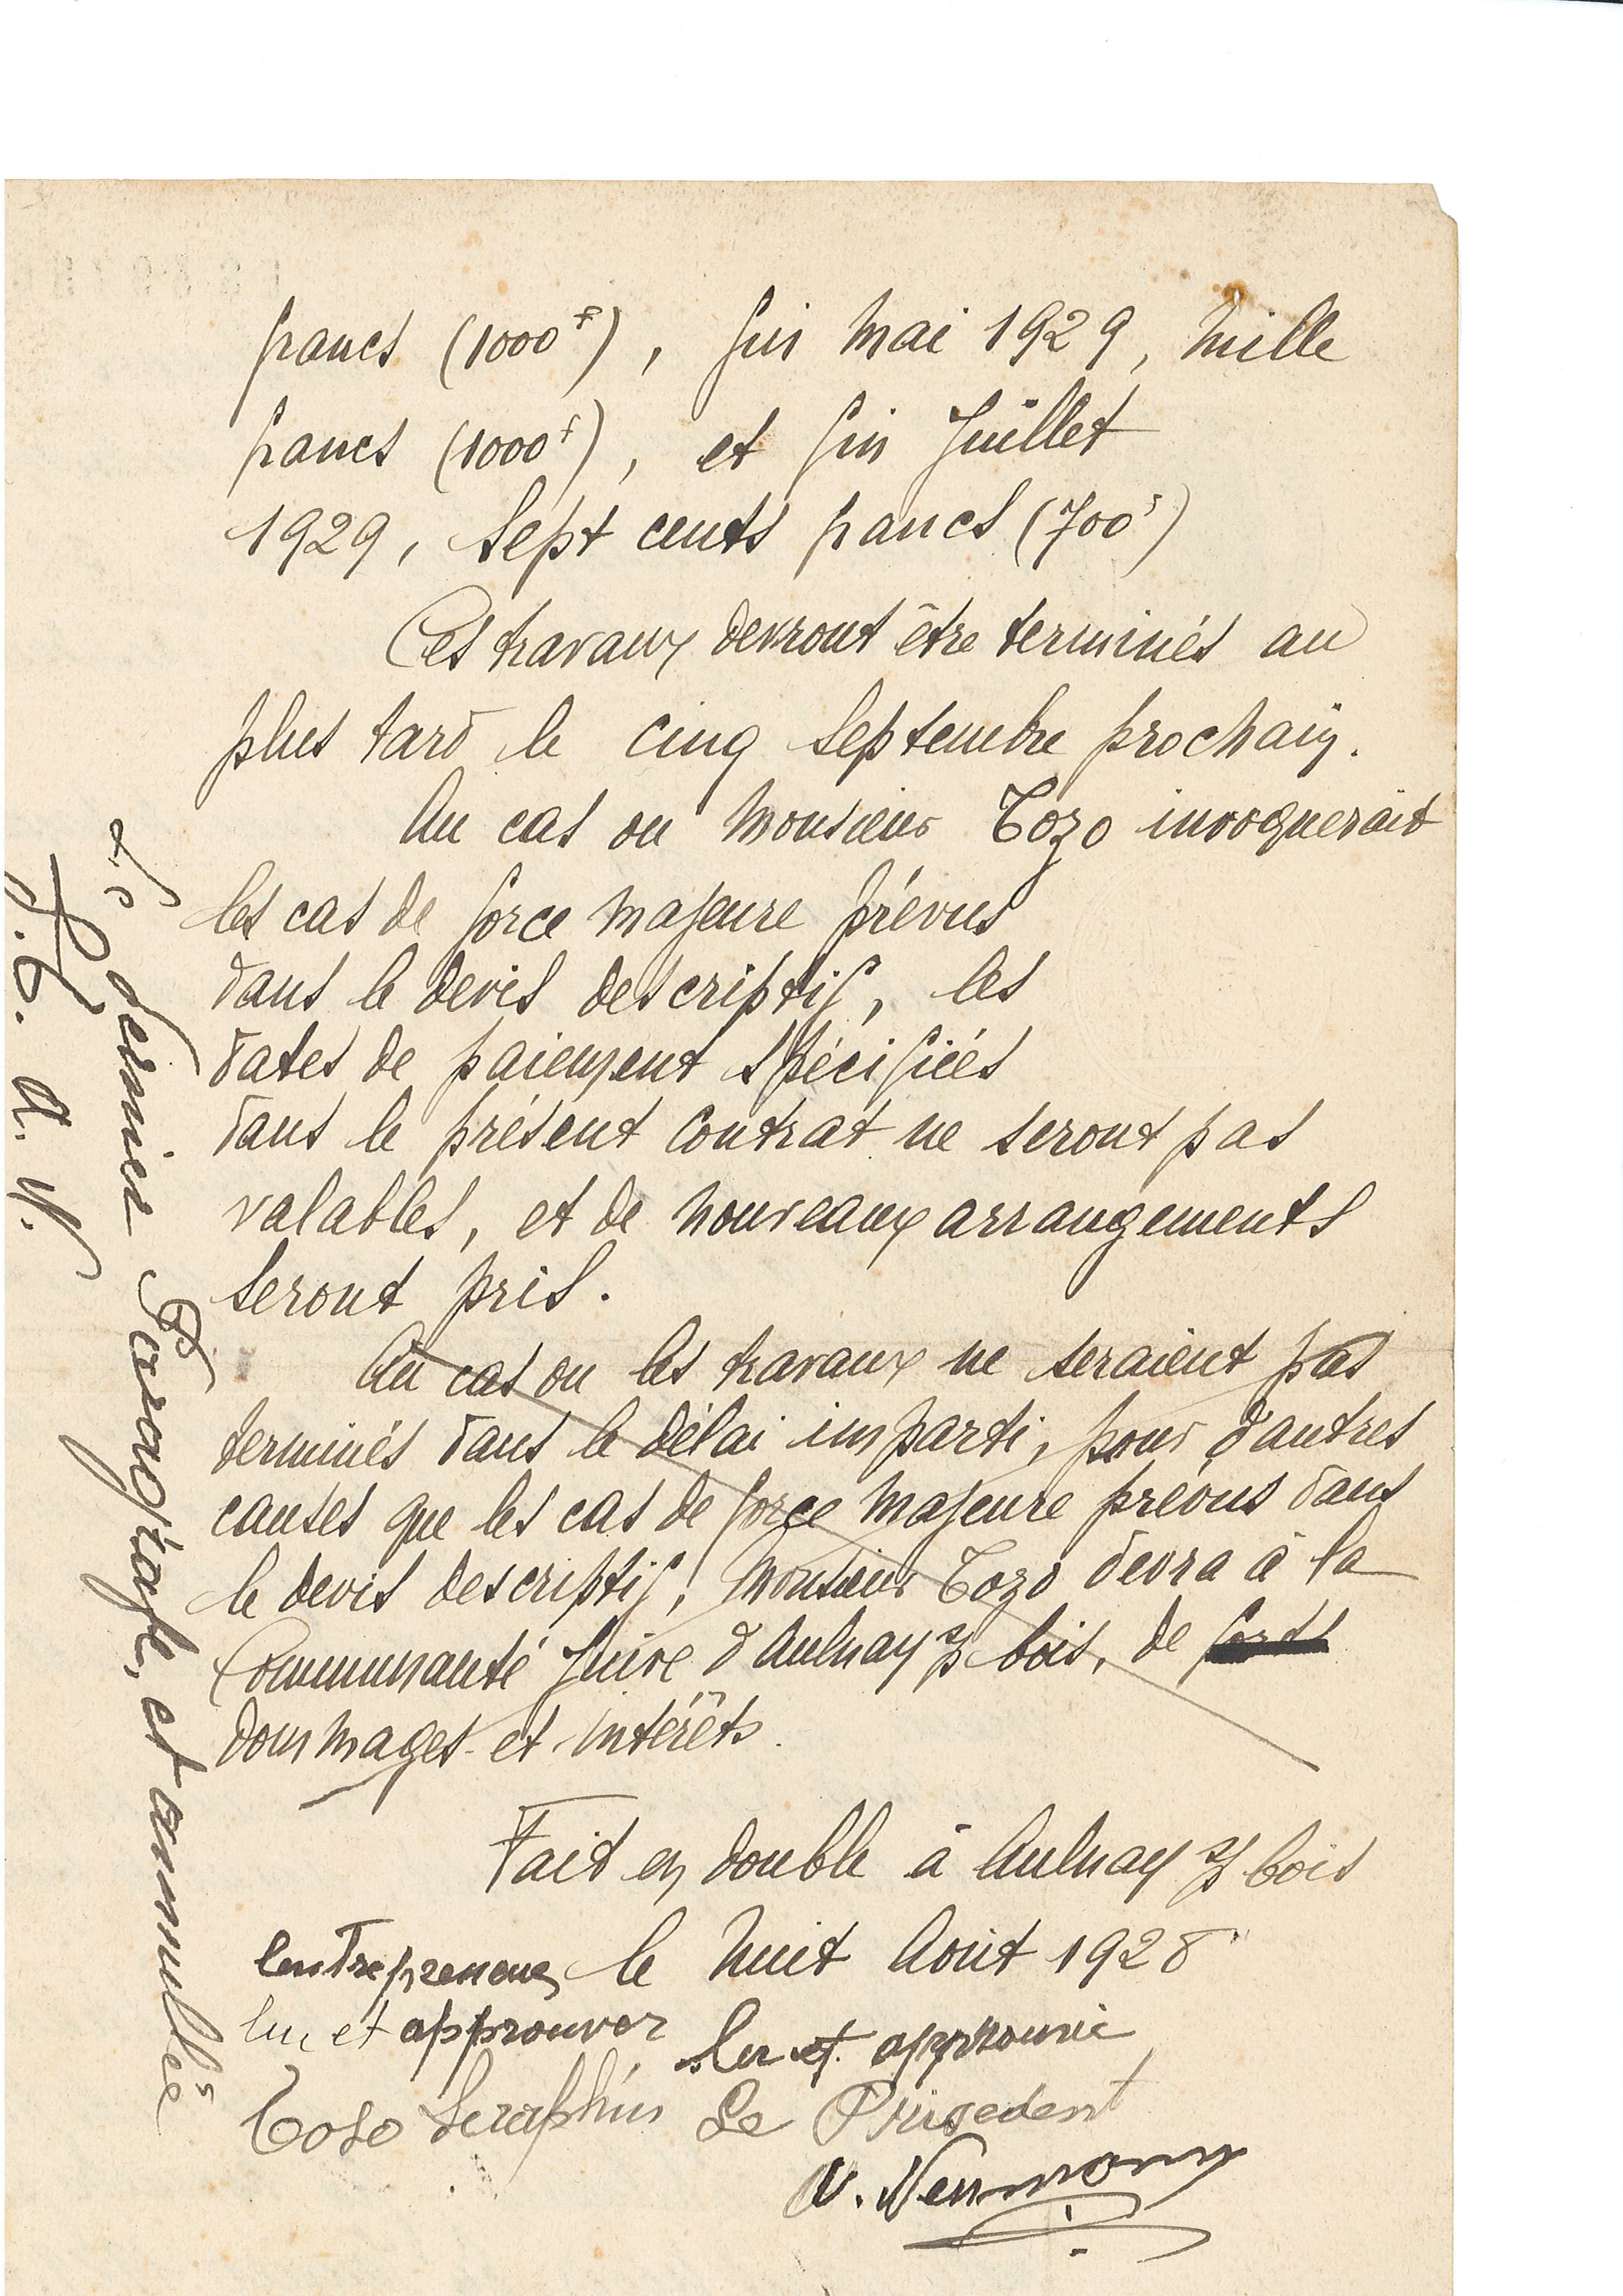 francs (1000f), fin Mai 1929, Mille
francs (1000f), et fin Juillet
1929, Sept cents francs (700f)
Ces travaux devront être terminés au
plus tard le cinq Septembre prochain.
Au cas ou Monsieur Tozo invoquerait
les cas de force majeure prévus
dans le devis descriptif, les
dates de paiement spécifiées
dans le présent contrat ne seront pas
valables, et de nouveaux arrangements
seront pris.
Au cas ou les travaux ne seraient pas
terminés dans le délai imparti, pour d'autres
causes que les cas de force majeure prévus dans
le devis descriptif, Monsieur Tozo devra à la
Communauté Juive d'Aulnay s/ bois, de forts
dommages et intérêts.
Fait en double à Aulnay s/ bois
le huit Août 1928
lentrepreneur
lu et approuver
Toso Seraphin
Lu et approuvé
Le Présedent
N. Neumann
Le dernier Paragrafe, et annullée
T. A. N.